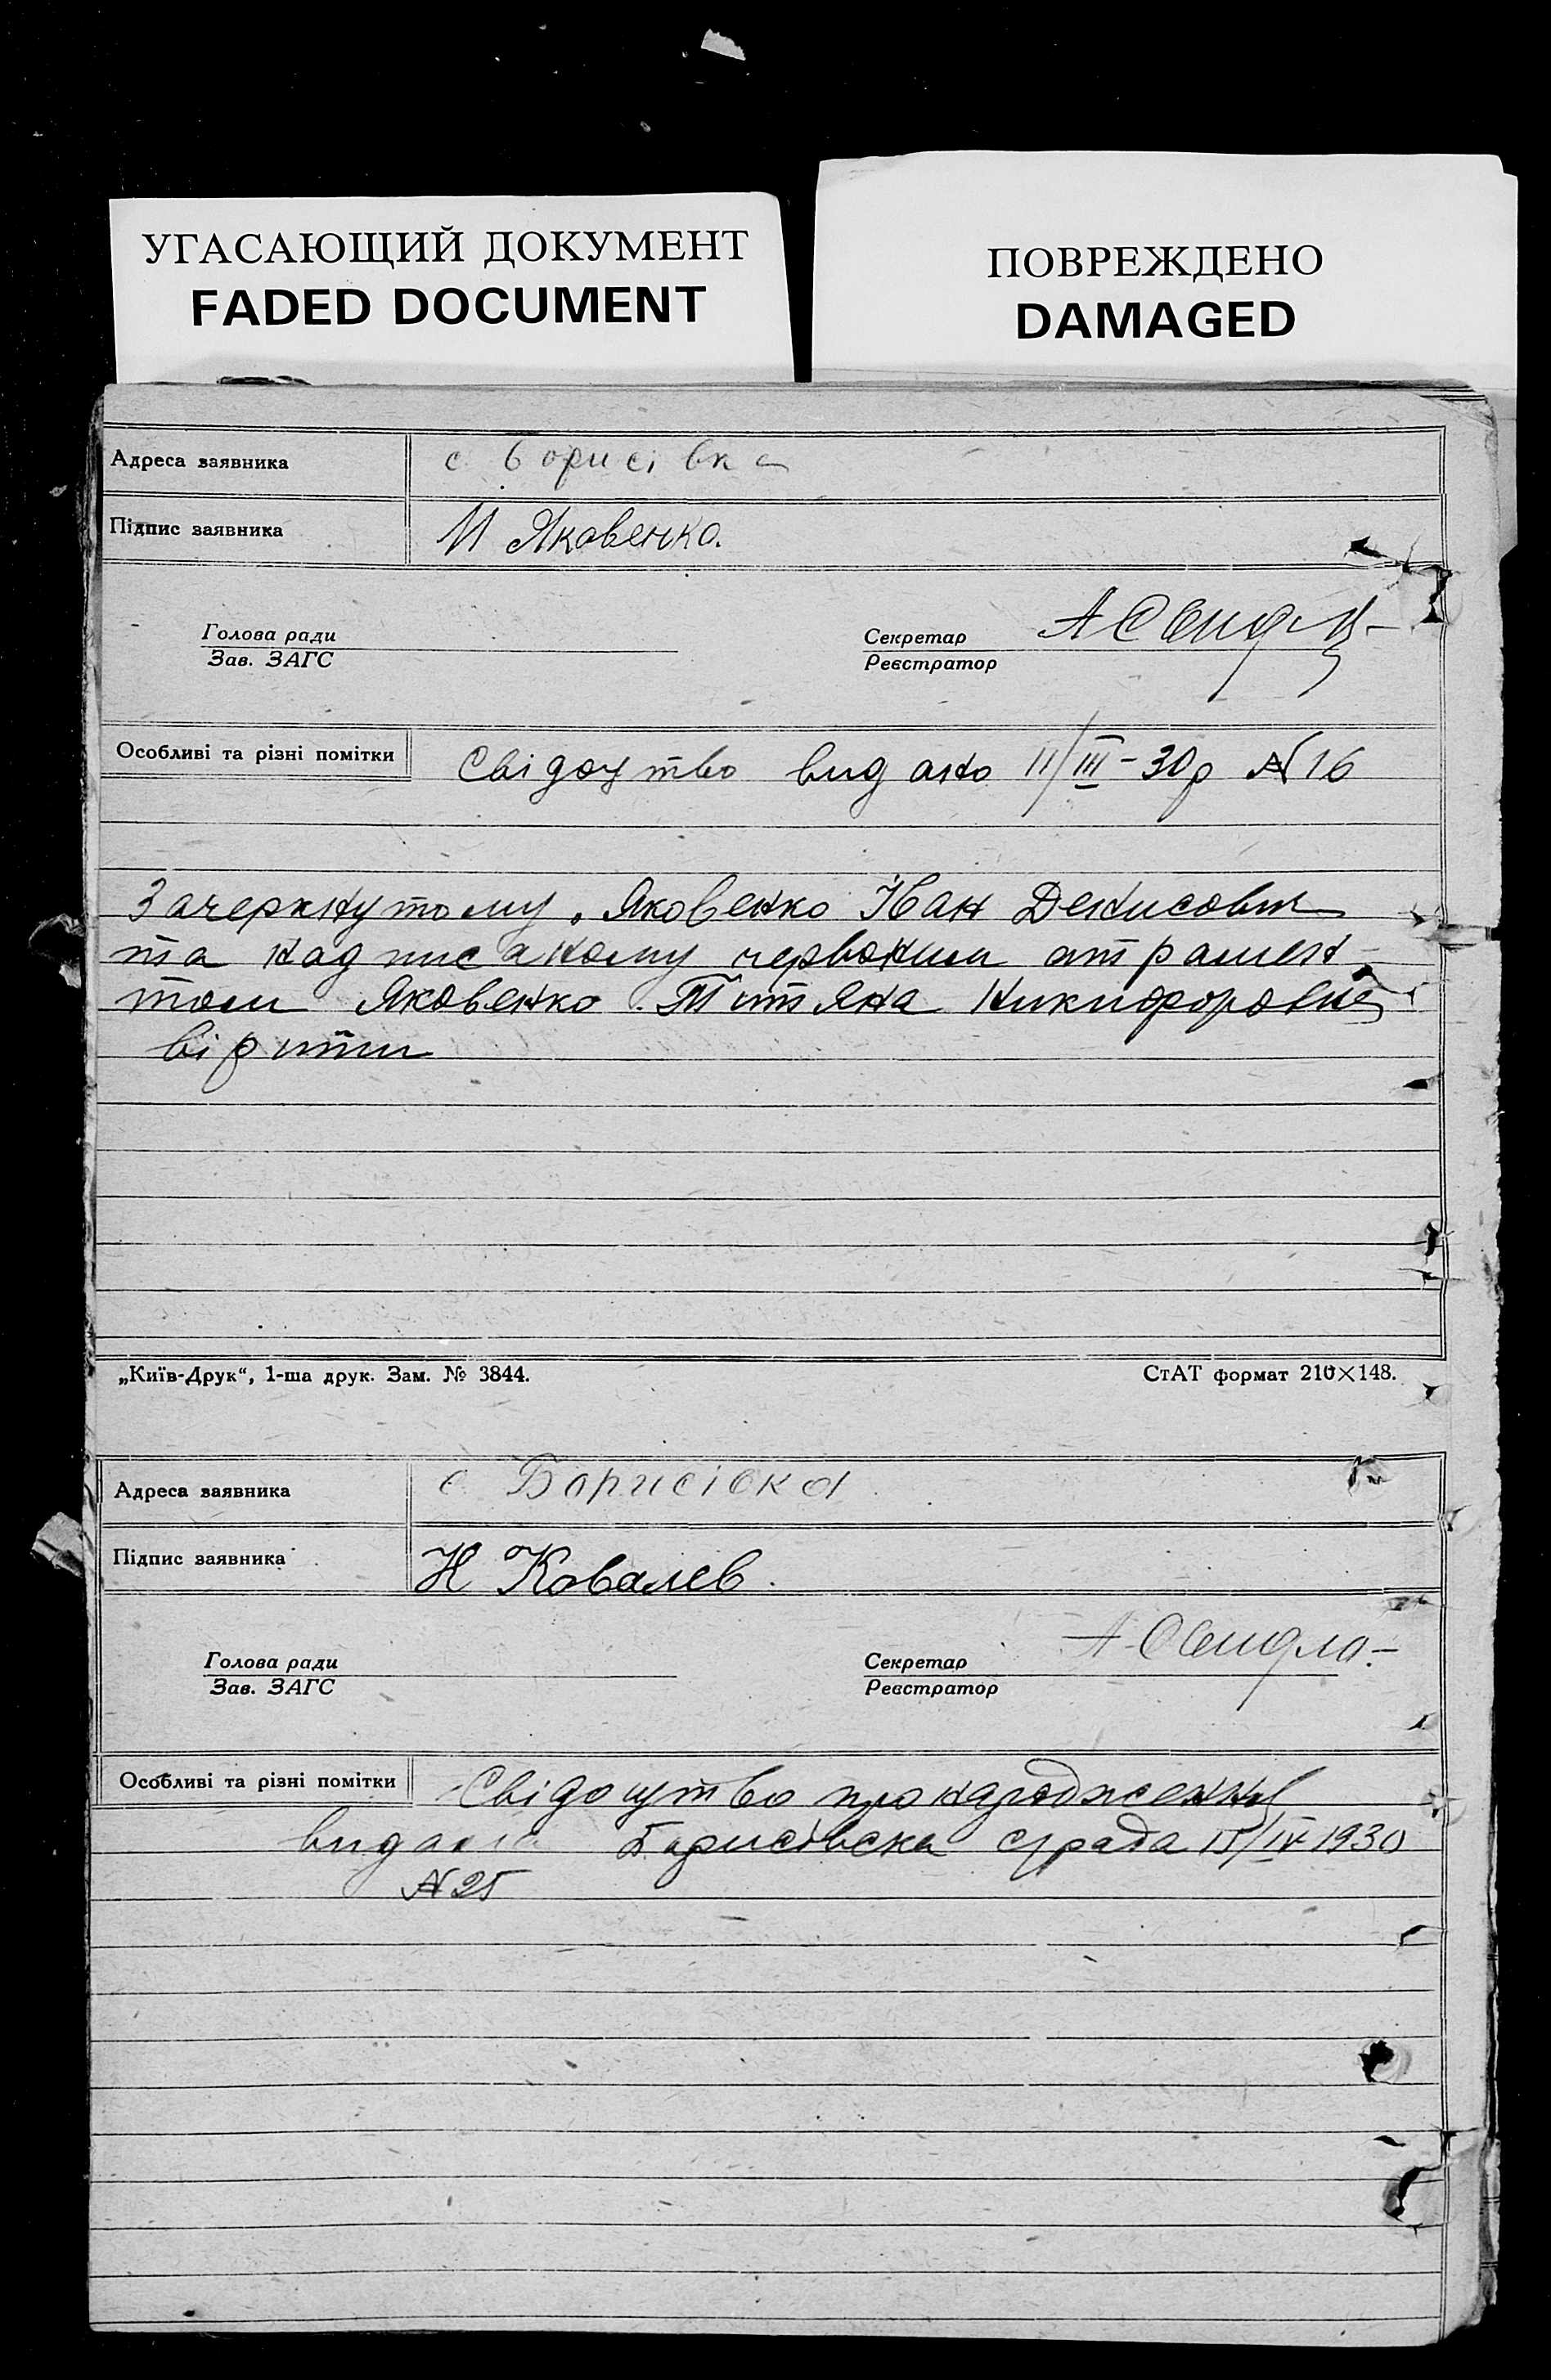 УГАСАЮЩИЙ ДОКУМЕНТ
FADED DOCUMENT
ПОВРЕЖДЕНО
DAMAGED
Адреса заявника с Борисівка
Підпис заявника И Яковенко.
Голова ради
Зав. ЗАГС
Секретар
Реєстратор
Особливі та різні помітки Свідоцтво видано 11/III-30р N16
Зачеркнутому Яковенко Іван Денисович
та надписаному червоним атрамен-
том Яковенко Титяна Никифоровна
вірити
„Київ-Друк“, 1-ша друк. Зам. № 3844. СтАТ формат 210×148.
Адреса заявника с Борисівка
Підпис заявника Н Ковалев.
Голова ради
Зав. ЗАГС
Секретар
Реєстратор
Особливі та різні помітки Свідоцтво про народження
Борисівска с/рада IV 1930
N25